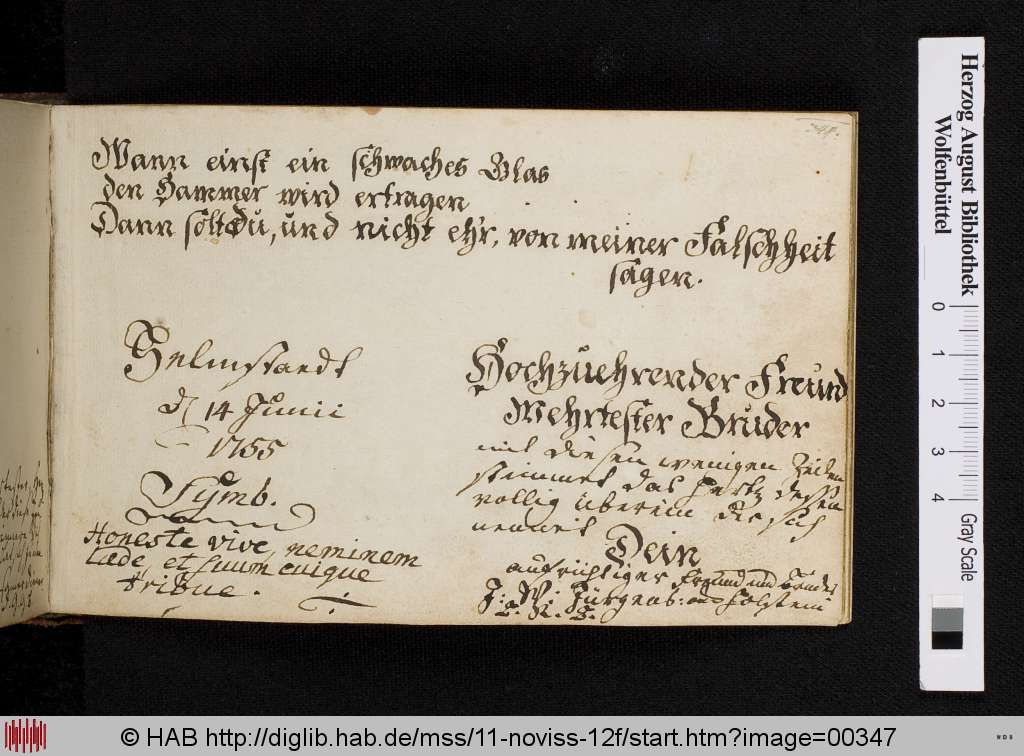 Wann einst ein schwaches Glas
den Hammer wird ertragen
Dann solstdu, und nicht ehr, von meiner Falschheit
sagen.
Helmstaedt
d 14 Junii
1755
Symb.
Honeste vive, neminem
laede, et suum cuique
tribue.
Hochzuehrender Freund
Wehrtester Bruder
mit diesen wenigen Zeilen
stimmet das Hertz dessen
vollig überein der sich
nennet
Dein
aufrichtiger Freund und Bruder
J. W. Jürgens:
Herzog August Bibliothek
Wolfenbüttel
0
1
2
3
4
Gray Scale
© HAB http://diglib.hab.de/mss/11-noviss-12f/start.htm?image=00347